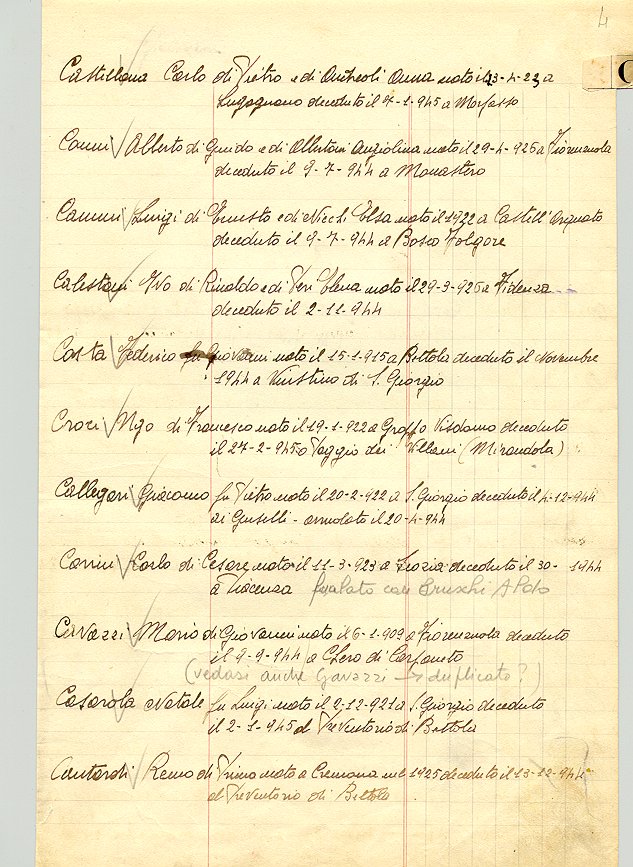 4
C
Castellana Carlo di Pietro e di Andreoli Anna nato il 23-4-23 a
Lugagnano deceduto il 7-1-945 a Morfasso
Canni Alberto di Guido e di Albertoni Angiolina nato il 29-4-926 a Fiorenzuola
deceduto il 9-7-944 a Monastero
Cammi Luigi di Ernesto e di Nicchi Elsa nato il 1922 a Castell'Arquato
deceduto il 9-7-944 a Bosco Folgore
Calestani Ivo di Rinaldo e di Elena nato il 29-3-926 a Fidenza
deceduto il 2-11-944
Costa Federico fu Giovanni nato il 15-1-915 a Bettola deceduto il Novembre
1944 a Vinstino di S. Giorgio
Croci Ugo di Francesco nato il 19-1-922 a Groppo Visdomo deceduto
il 27-2-945 a Vaggio dei Villani (Mirandola)
Callegari Giacomo fu Pietro nato il 20-2-922 a S. Giorgio deceduto il 4-12-944
ai Guselli - arruolato il 20-4-944
Carini Carlo di Cesare nato il 11-3-923 a deceduto il 30- 1944
a Piacenza fucilato con Bruschi Aldo
Cavazzi Mario di Giovanni nato il 6-1-909 a Fiorenzuola deceduto
il 9-9-944 a Chero di Carpaneto
(vedasi anche Gavazzi → duplicato?)
Casarola Natale fu Luigi nato il 2-12-921 a S. Giorgio deceduto
il 2-1-945 al Preventorio di Bettola
Contardi Remo di Primo nato a Cremona nel 1925 deceduto il 13-12-944
al Preventorio di Bettola